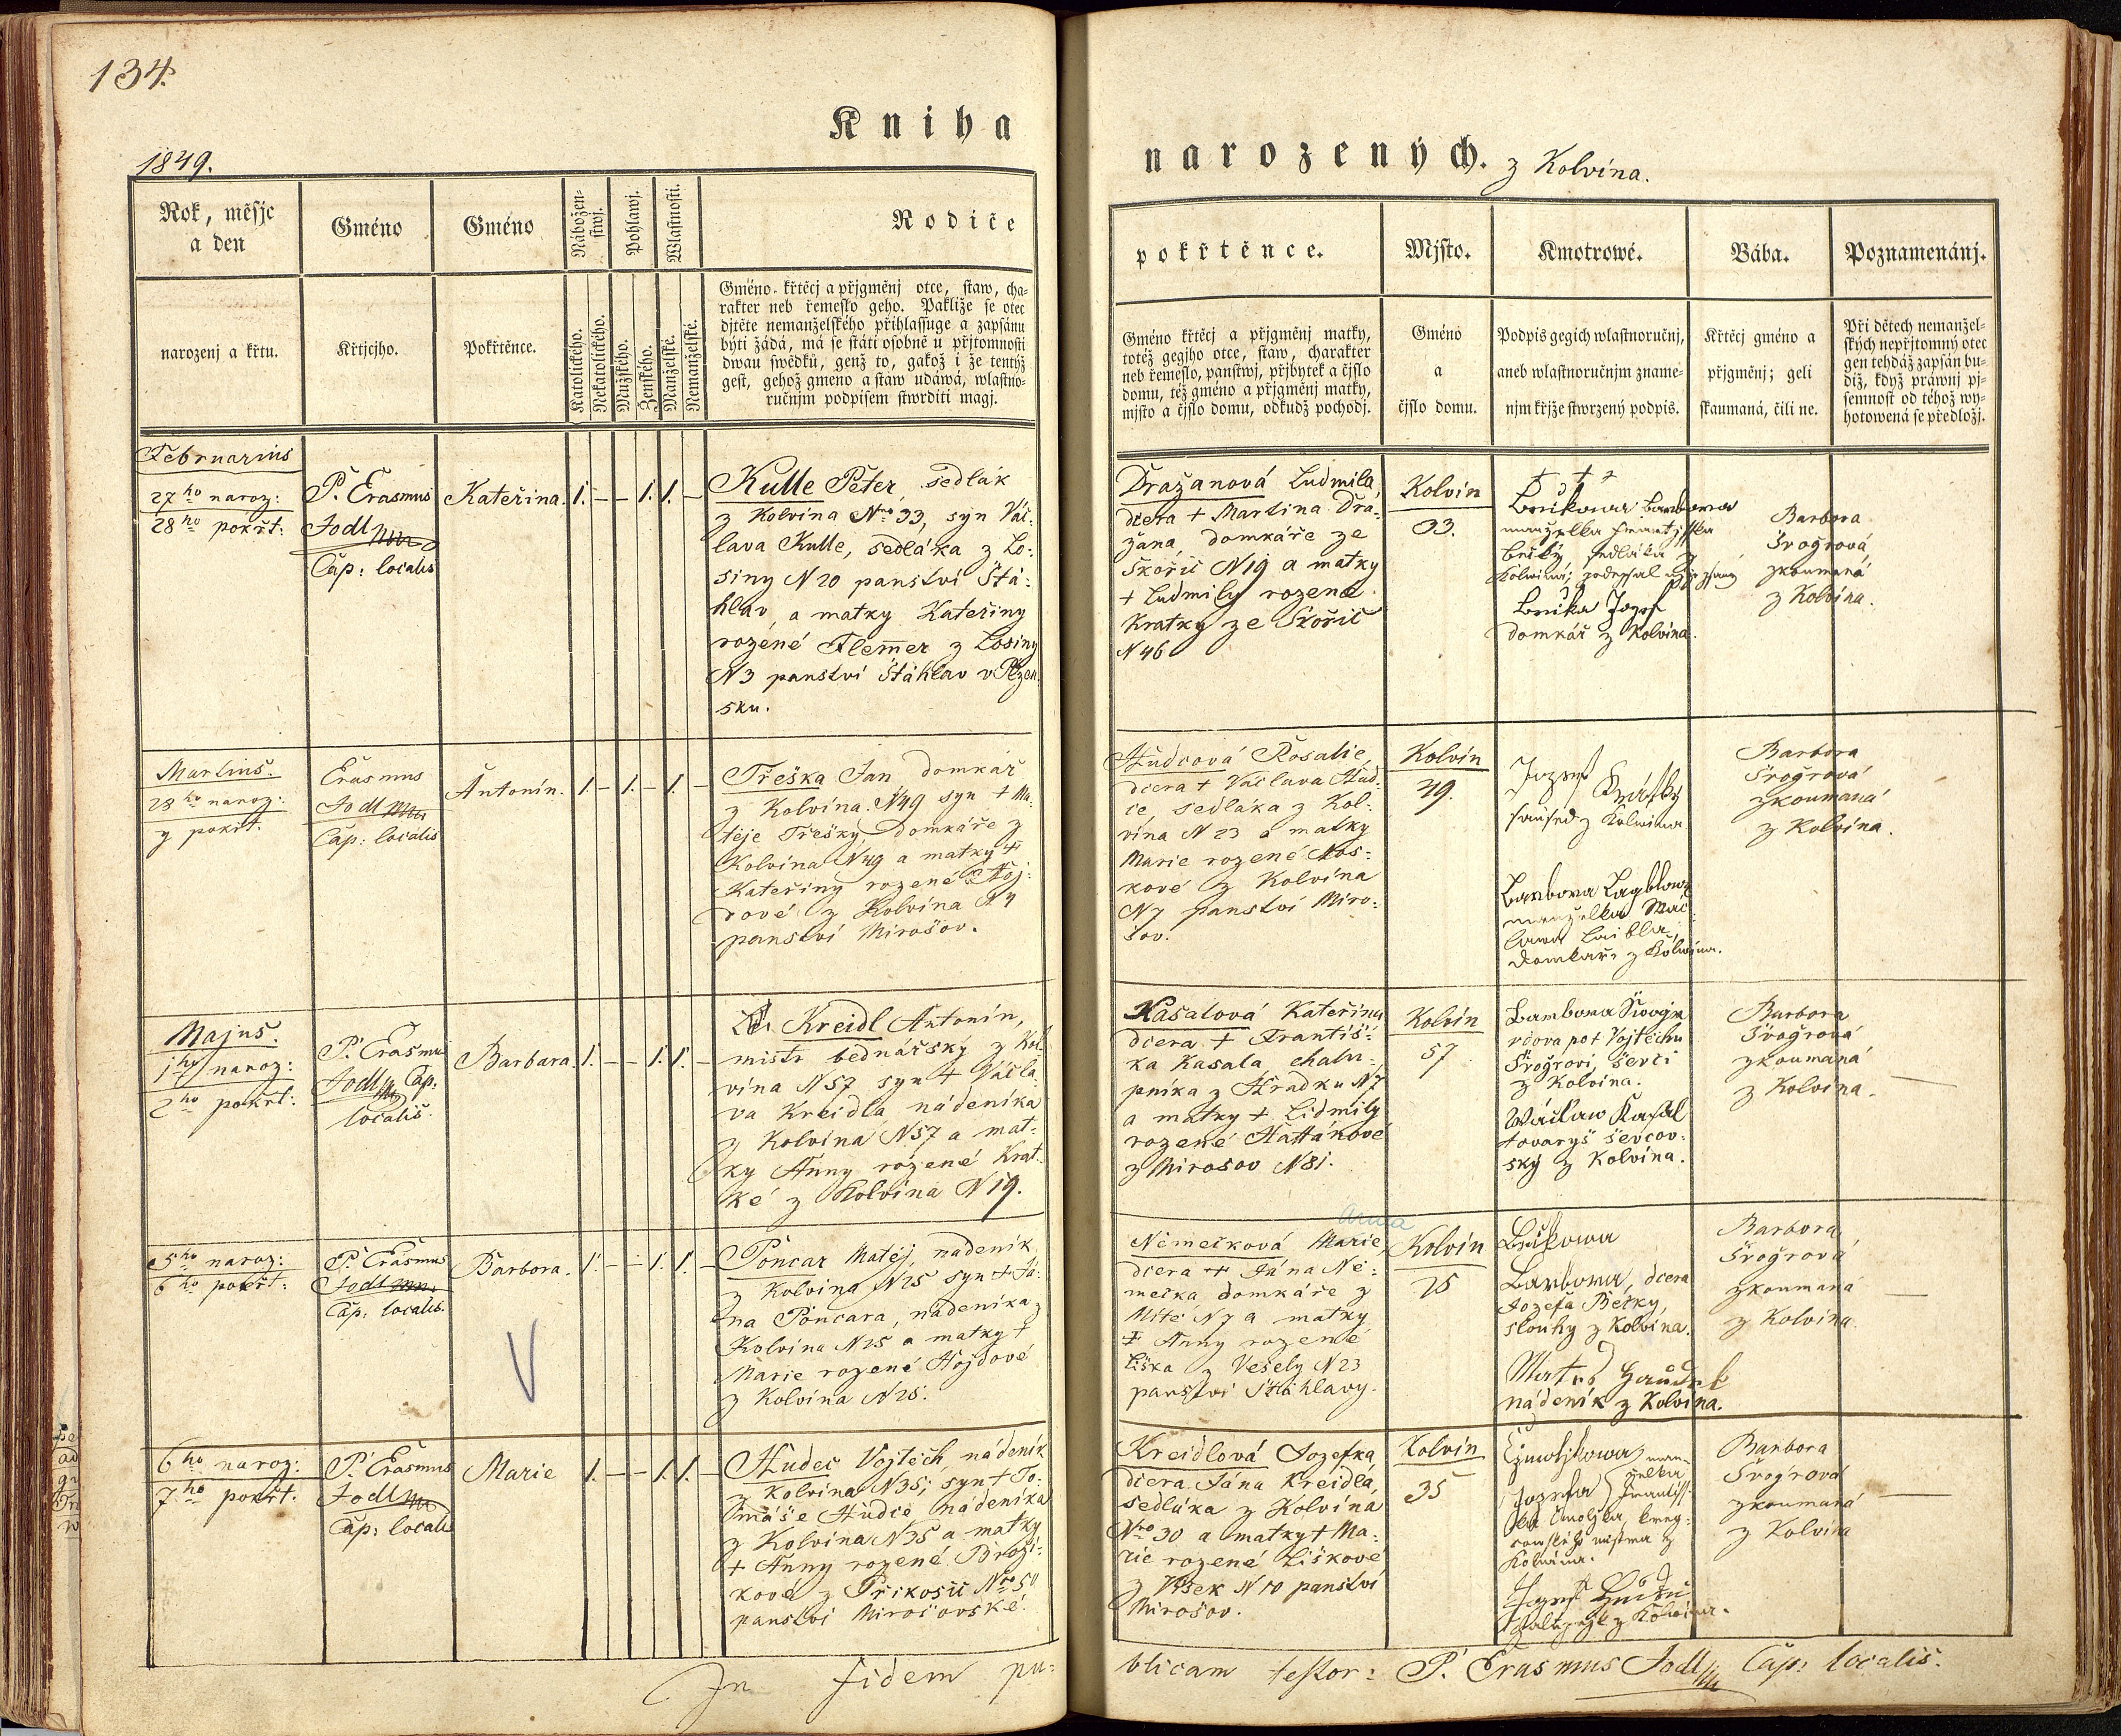 134.
Kniha
1849.
Rok, měsjc
a den
Gméno
Gméno
Nábožen-
stwj.
Pohlawj.
Wlastnosti.
Rodiče
narozenj a křtu.
Křtjcjho.
Pokřtěnce.
Katolického.
Nekatolického.
Mužského.
Ženského.
Manželské.
Nemanželské.
Gméno křtěcj a přjgměnj otce, staw, cha-
rakter neb řemeslo geho. Pakliže se otec
djtěte nemanželského přihlassuge a zapsánu
býti žádá, má se státi osobně u přjtomnosti
dwau swědků, genž to, gakož i že tentýž
gest, gehož gmeno a staw udáwá, wlastno-
ručnjm podpisem stwrditi magj.
Februarius
27ho naroz:
28ho pokřt:
P. Erasmus
Jodl
Cap: localis
Kateřina.
1. – – 1. 1. –
Kulle Peter, sedlák
z Kolvína Nro 33, syn Vác-
lava Kulle, sedláka z Lo:
siny N 20 panství Štá:
hlav, a matky Kateřiny
rozené Flemer z Losiny
N3 panství Štáhlav v Plzen
sku.
Martius.
28ho naroz:
pokřt.
Erasmus
Jodl
Cap: localis
Antonín.
1. – 1. – 1. –
Třeška Jan domkář
z Kolvína N49 syn + Ma:
těje Třešky domkáře z
Kolvína N49 a matky +
Kateřiny rozené Hoj:
dové z Kolvína N4
panství Mirošov.
Majus.
1ho naroz:
2ho pokřt:
P. Erasmus
Jodl Cap:
localis.
Barbara
1. – – 1. 1. –
Kreidl Antonín,
mistr bednářský z Kol
vína N57 syn + Václa
va Kreidla, nádeníka
z Kolvína N57 a mat:
ky Anny rozené Krat:
ké z Kolvína N19.
5ho naroz:
6ho pokřt:
P. Erasmus
Jodl
Cap: localis.
Barbora.
1. – – 1. 1. –
Pončar Matěj, nádeník
z Kolvína N25 syn + Já:
na Pončara, nádeníka z
Kolvína N25 a matky +
Marie rozené Hojdové
z Kolvína N25.
6ho naroz:
7ho pokřt:
P. Erasmus
Jodl
Cap: localis
Marie
1. – – 1. 1. –
Hudec Vojtěch, nádeník
z Kolvína N35; syn + To:
máše Hudce nádeníka
z Kolvína N35 a matky
+ Anny rozené Brozí:
kové z Příkosic Nro 50
panství Mirošovské.
In fidem pu:
narozených. z Kolvína.
pokřtěnce.
Mjsto.
Kmotrowé.
Bába.
Poznamenánj.
Gméno křtěcj a přjgměnj matky,
totěž gegjho otce, staw, charakter
neb řemeslo, panstwj, přjbytek a čjslo
domu, též gméno a přjgměnj matky,
mjsto a čjslo domu, odkudž pochodj.
Gméno
a
čjslo domu.
Podpis gegich wlastnoručnj,
aneb wlastnoručnjm zname-
njm křjže stwrzený podpis.
Křtěcj gméno a
přjgměnj; geli
skaumaná, čili ne.
Při dětech nemanžel-
ských nepřjtomný otec
gen tehdáž zapsán bu-
diž, když práwnj pj-
semnost od téhož wy-
hotowená se předložj.
Dražanová Ludmila,
dcera + Martina Dra:
žana, domkáře ze
Skořic N19 a matky
+ Ludmily rozené
Kratky ze Skořic
N46
Kolvín
33.
+ + +
manželka
sedláka z
Kolwína; podepsal
Jozef
domkář z Kolvína.
Barbora
Šrogrová
zkoumaná
z Kolvína.
Hudcová Rosalie,
dcera + Václava Hud
ce, sedláka z Kol:
vína N 23 a matky
Marie rozené Nos:
kové z Kolvína
N7 panství Miro:
šov.
Kolvín
49.
Jozef Krátky
saused z Kolwína
Barbora
manželka Wác
lawa Laibla,
domkáře z Kolwína.
Barbora
Šrogrová
zkoumaná
z Kolvína.
Kasalová Kateřina
dcera + Františ:
ka Kasala, chalu:
pníka z Hradku N7
a matky + Lidmily
rozené Hattánové
z Mirošov N81.
Kolvín
57
Barbora
po + Vojtěchu
Šrogrovi, ševci
z Kolvína.
Wáclaw Kasal
tovaryš ševcov:
ský z Kolvína.
Barbora
Šrogrová
zkoumaná
z Kolvína.
Anna
Němečková Marie,
dcera + Jána Ně:
mečka domkáře z
Mítě N7 a matky
+ Anny rozené
Liška z Veselý N23
panství Štáhlavy.
Kolvín
25
Barbora, dcera
Jozefa Bečky,
slouhy z Kolvína.
nádeník z Kolvína.
Barbora
Šrogrová
zkoumaná
z Kolvína.
Kreidlová Jozefka,
dcera Jána Kreidla,
sedláka z Kolvína
Nro 30 a matky + Ma:
rie rozené Liškové
z Vísek N10 panství
Mirošov.
Kolvín
35
man-
želka
Jozefa
z
Kolwína.
Jozef
z Kolwína.
Barbora
Šrogrová
zkoumaná
z Kolvína
blicam testor: P. Erasmus Jodl Cap: localis.